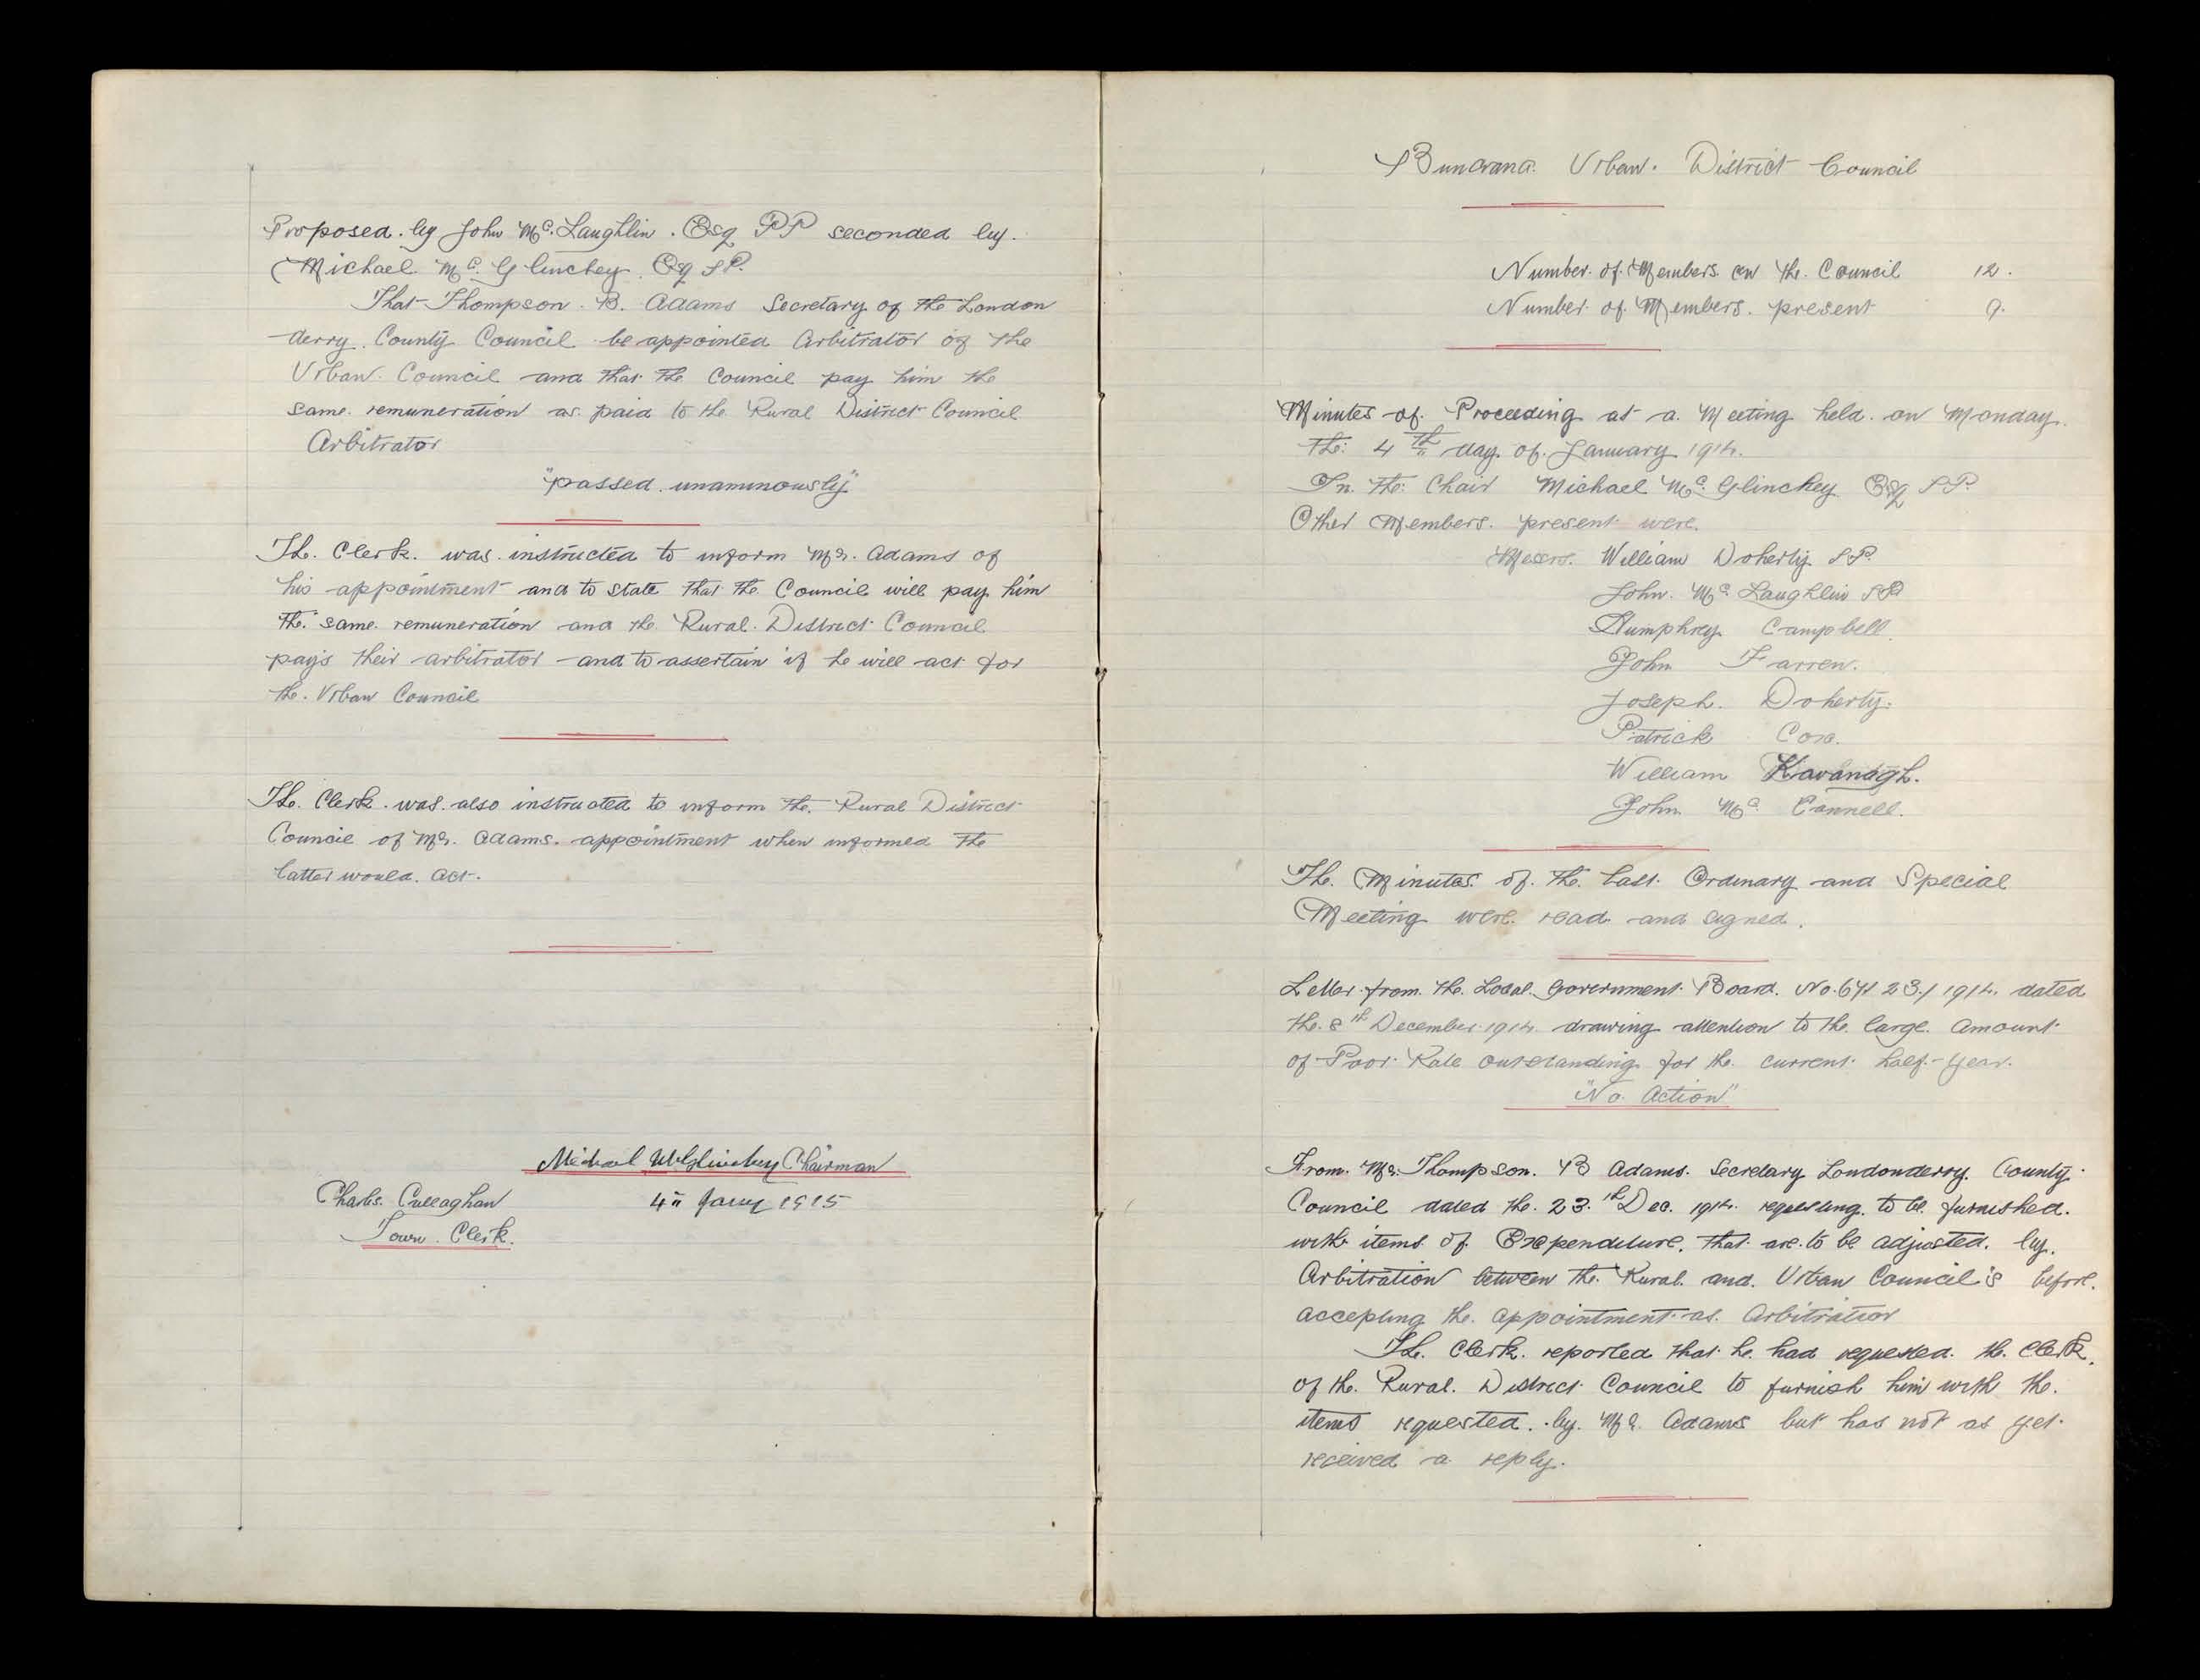 Proposed by John McLaughlin. Esq JP seconded by.
Michael McGlinchey. Esq JP.
That Thompson. B. Adams Secretary of the London
derry. County Council be appointed Arbitrator of the
Urban Council and that the Council pay him the
same remuneration as paid to the Rural District Council
Arbitrator
"passed unaminously"
The Clerk. was instructed to inform Mr. Adams of
his appointment and to state that the Council will pay him
the same remuneration and the Rural. District Council
pays their arbitrator and to assertain if he will act for
the Urban Council
The Clerk was also instructed to inform the Rural District
Council of Mr. Adams. appointment when informed the
latter would. act.
Michael McGlinchey Chairman
Charles. Callaghan
4" Jany 1915
Town Clerk.
Buncrana Urban. District Council
Number of Members on the Council 12.
Number of Members. present 9.
Minutes of Proceeding at a Meeting held on Monday.
the 4th day of January 1914.
In the Chair Michael McGlinchey Esq JP.
Other Members. present were.
Messrs. William Doherty JP.
John. McLaughlin JP
Humphrey Campbell.
John Farren.
Joseph. Doherty.
Patrick Cox.
William Kavanagh.
John McConnell.
The Minutes of the last Ordinary and Special
Meeting were read and signed.
Letter from the Local Government Board. No. 67123/1914. dated
the 8th December 1914 drawing attention to the large. amount
of Poor Rate outstanding for the current half-year.
"No Action"
From. Mr. Thompson. B Adams. Secretary Londonderry. County
Council dated the 23.th Dec. 1914. requesting to be furnished.
with items of Expenditure. that are to be adjusted. by.
Arbitration between the Rural. and. Urban Council's before.
accepting the appointment as. Arbitration
The Clerk. reported that he had requested. the Clerk.
of the Rural. District Council to furnish him with the.
items requested. by. Mr. Adams but has not as yet
received a reply.